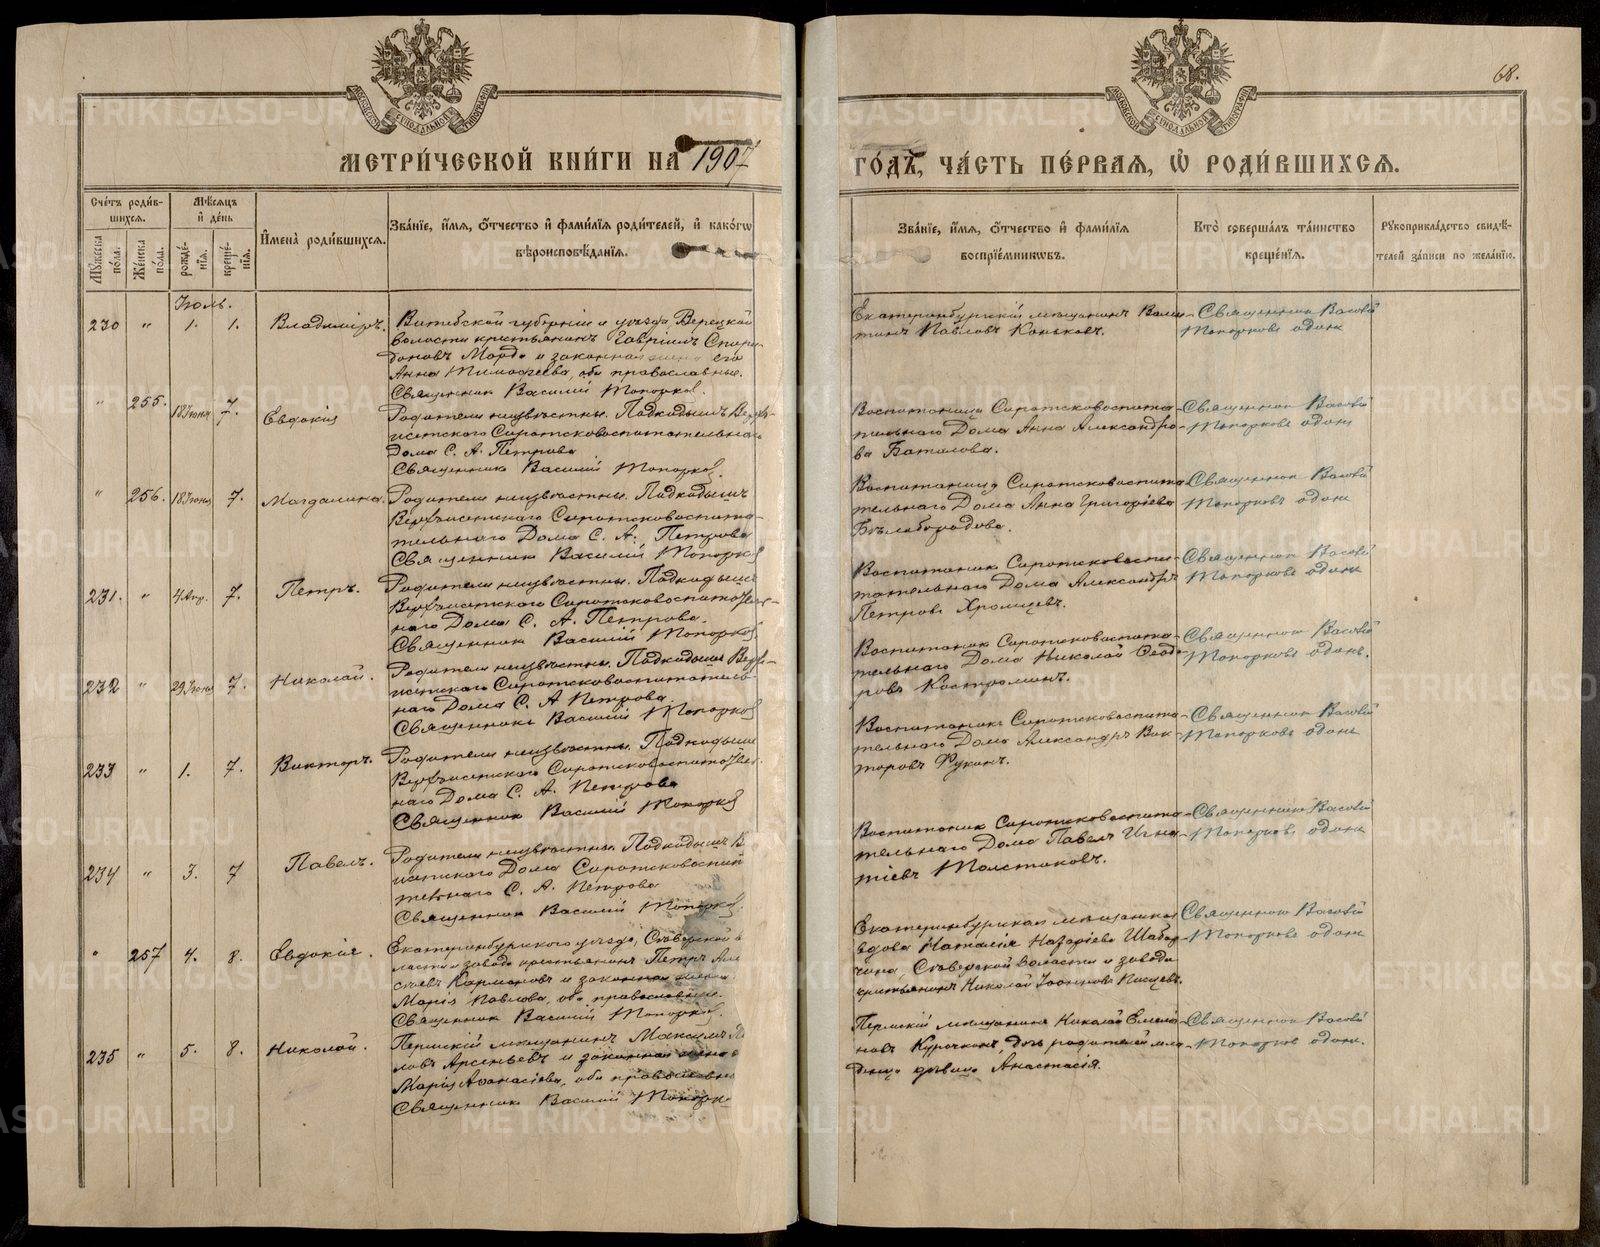 68.
МОСКОВСКОЙ СѴНОДАЛЬНОЙ ТИПОГРАФІИ
МОСКОВСКОЙ СѴНОДАЛЬНОЙ ТИПОГРАФІИ
МЕТРИ́ЧЕСКОЙ КНИ́ГИ НА 1907
ГО́ДЪ, ЧА́СТЬ ПЕ́РВАЯ, Ѡ҆ РОДИ́ВШИХСЯ.
Сче́тъ роди́в-
шихся.
Му́жеска по́ла.
Же́нска по́ла.
Мѣ́сяцъ
и҆ де́нь
рожде́-
нїя.
креще́-
нїя.
И҆мена̀ роди́вшихся.
Зва́нїе, и҆́мя, ѻ҆́тчество и҆ фами́лїя роди́телей, и҆ како́гѡ
вѣроисповѣ́данїя.
Зва́нїе, и҆́мя, ѻ҆́тчество и҆ фами́лїя
воспрїе́мникѡвъ.
Кто̀ соверша́лъ та́инство
креще́нїя.
Рꙋкоприкла́дство свидѣ́-
телей за́писи по жела́нїю.
Іюль.
230 " 1. 1. Владиміръ.
Витебской губерніи и уѣзда Верецкой
волости крестьянинъ Гавріилъ Спири-
доновъ Мордо и законная жена его
Анна Тимоѳеева, оба православные.
Священник Василій Топорков.
Екатеринбургскій мѣщанинъ Вале-
тинъ Павловъ Коньковъ.
Священник Василій
Топорковъ одинъ
" 255. 18 Іюня 7. Евдокія
Родители неизвѣстны. Подкидышъ Верхъ-
исетскаго Сиротсковоспитательнаго
Дома С. А. Петрова
Священник Василій Топорков.
Воспитаница Сиротсковоспита-
тельнаго Дома Анна Александро-
ва Баталова.
Священник Василій
Топорковъ одинъ
" 256. 18 Іюня 7. Магдалина.
Родители неизвѣстны. Подкидышъ
Верхъисетскаго Сиротсковоспита-
тельнаго Дома С. А. Петрова
Священник Василій Топорков
Воспитаница Сиротсковоспита-
тельнаго Дома Анна Григоріева
Бѣлобородова.
Священник Василій
Топорковъ одинъ
231. " 7. Петръ.
Родители неизвѣстны. Подкидышъ
Верхъисетскаго Сиротсковоспитатель-
наго Дома С. А. Петрова.
Священник Василій Топорков.
Воспитаник Сиротсковоспи-
тательнаго Дома Александръ
Петровъ Хромцевъ.
Священник Василій
Топорковъ одинъ
232 " 29 Іюня 7. Николай.
Родители неизвѣстны. Подкидышъ Верхъ-
исетскаго Сиротсковоспитатель-
наго Дома С. А Петрова
Священник Василій Топорков
Воспитаник Сиротсковоспита-
тельнаго Дома Николай Ѳеодо-
ровъ Костроминъ.
Священник Василій
Топорковъ одинъ.
233 " 1. 7. Викторъ.
Родители неизвѣстны. Подкидышъ
Верхъисетскаго Сиротсковоспитатель-
наго Дома С. А. Петрова
Священник Василій Топорков
Воспитаник Сиротсковоспита-
тельнаго Дома Александръ Вик-
торовъ
Священник Василій
Топорковъ одинъ
234 " 3. 7 Павелъ.
Родители неизвѣстны. Подкидышъ В
исетскаго Дома Сиротсковоспит
тельнаго С. А. Петрова
Священник Василій Топорков.
Воспитаник Сиротсковоспита-
тельнаго Дома Павелъ Игна-
тіевъ Толстиковъ.
Священник Василій
Топорковъ одинъ
" 257 4. 8. Евдокія.
Екатеринбургскаго уѣзда, Сѣверской во
ласти и завода крестьянинъ Петръ
Кармановъ и законная жена
Марія Павлова, оба православные.
Священник Василій Топорков.
Екатеринбургская мѣщанская
вдова Наталія Назаріева
Сѣверской Волости и завода
крестьянинъ Николай Іоанновъ
Священник Василій
Топорковъ одинъ
235 " 5. 8. Николай.
Пермскій мѣщанинъ Максимъ
Арсеньевъ и законная жена
Марія Аѳанасіева, оба православные
Священник Василій Топорк
Пермскій мѣщанинъ Николай Емелія-
новъ Курочкинъ, дочь родителей мла-
денца дѣвица Анастасія.
Священник Василій
Топорков одинъ.
METRIKI.GASO-URAL.RU